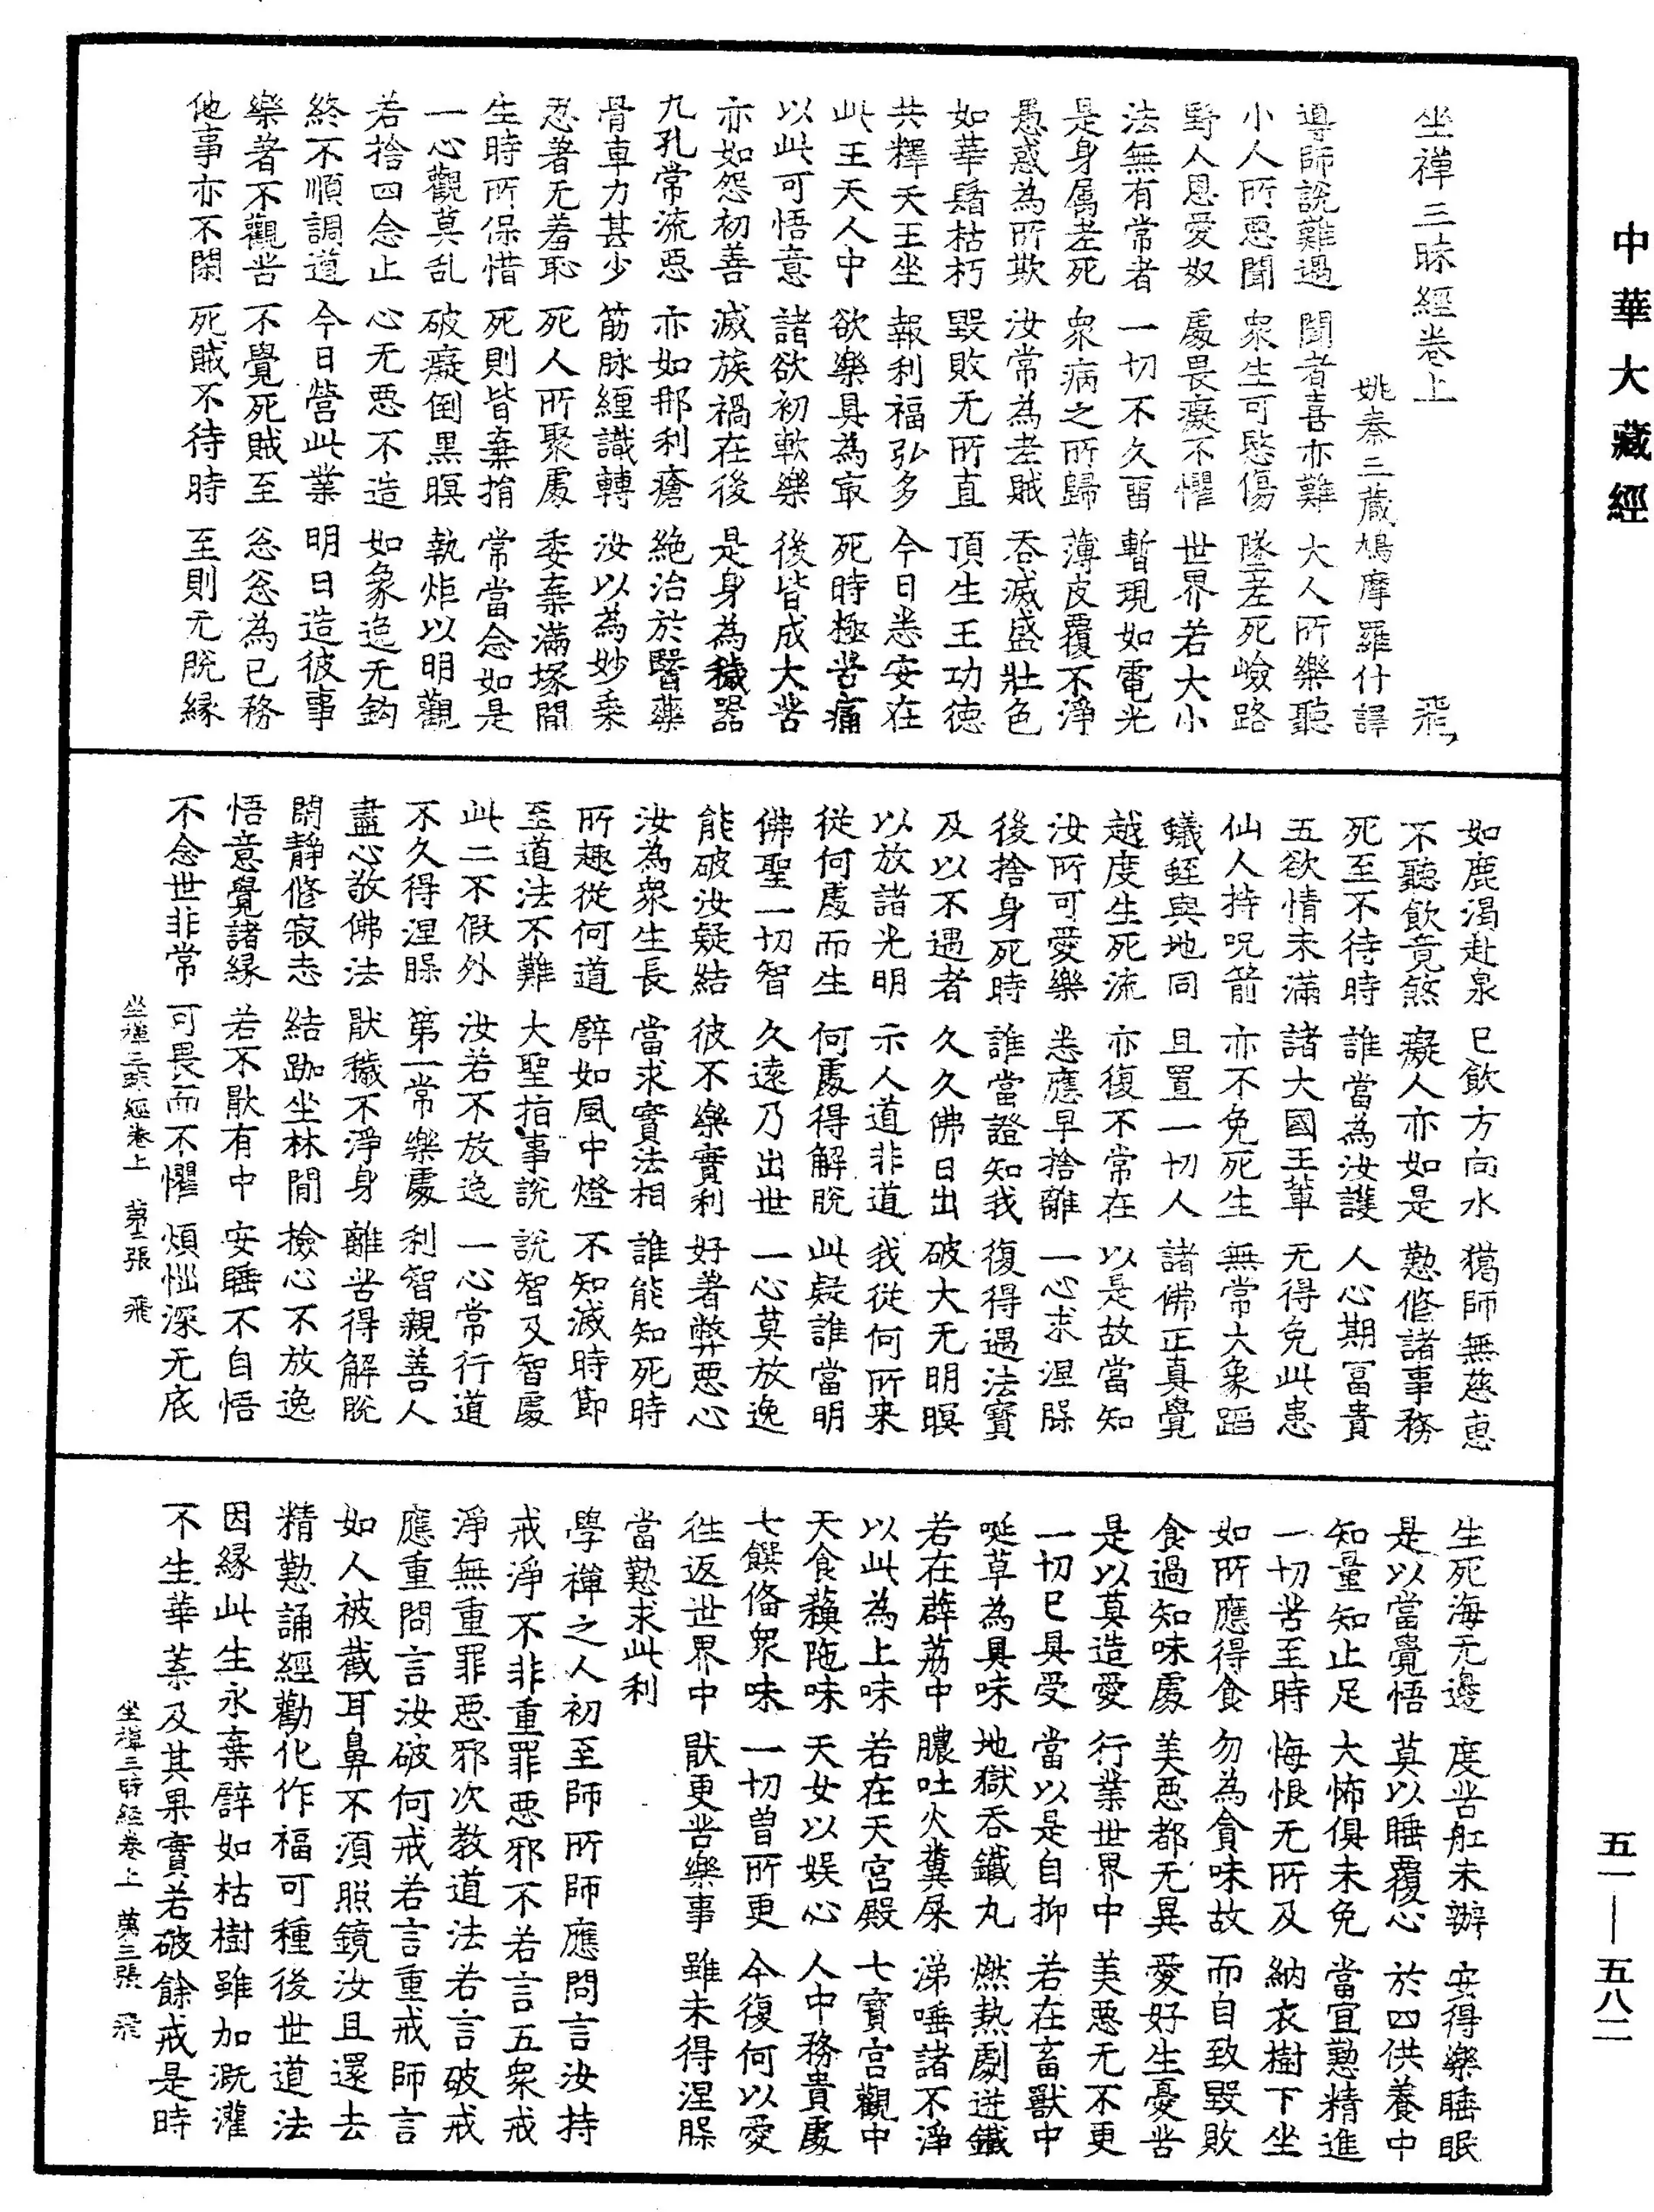 中華大藏經
坐禪三昧經卷上　飛
姚秦三藏鳩摩羅什譯
導師說難遇　聞者喜亦難　大人所樂聽
小人所惡聞　衆生可愍傷　墜老死嶮路
野人恩愛奴　處畏癡不懼　世界若大小
法無有常者　一切不久留　暫現如電光
是身属老死　衆病之所歸　薄皮覆不淨
愚惑為所欺　汝常為老賊　吞滅盛壯色
如華鬘枯朽　毀敗无所直　頂生王功德
共釋天王坐　報利福弘多　今日悉安在
此王天人中　欲樂具為㝡　死時極苦痛
以此可悟意　諸欲初軟樂　後皆成大苦
亦如怨初善　滅族禍在後　是身為穢器
九孔常流惡　亦如那利瘡　絶治於醫藥
骨車力甚少　筋脉纏識轉　汝以為妙乗
忍著无羞恥　死人所聚處　委棄滿塚間
生時所保惜　死則皆棄捐　常當念如是
一心觀莫乱　破癡倒黒暝　執炬以明觀
若捨四念止　心无惡不造　如象逸无鈎
終不順調道　今日營此業　明日造彼事
樂著不觀苦　不覺死賊至　忩忩為已務
他事亦不閑　死賊不待時　至則无脫緣
如鹿渴赴泉　已飲方向水　獦師無慈恵
不聽飲竟煞　癡人亦如是　懃修諸事務
死至不待時　誰當為汝護　人心期冨貴
五欲情未滿　諸大國王軰　无得免此患
仙人持呪箭　亦不免死生　無常大象蹈
蟻蛭與地同　且置一切人　諸佛正真覺
越度生死流　亦復不常在　以是故當知
汝所可愛樂　悉應早捨離　一心求涅𣵀
後捨身死時　誰當證知我　復得遇法寳
及以不遇者　久久佛日出　破大无明暝
以放諸光明　示人道非道　我從何所来
從何處而生　何處得解脫　此疑誰當明
佛聖一切智　久遠乃出世　一心莫放逸
能破汝疑結　彼不樂實利　好著弊惡心
汝為衆生長　當求實法相　誰能知死時
所趣從何道　譬如風中燈　不知滅時節
至道法不難　大聖指事說　說智及智處
此二不假外　汝若不放逸　一心常行道
不久得涅𣵀　第一常樂處　利智親善人
盡心敬佛法　猒穢不淨身　離苦得解脫
閑静修寂志　結跏坐林間　撿心不放逸
悟意覺諸緣　若不猒有中　安睡不自悟
不念世非常　可畏而不懼　煩惱深无底
坐禪三昧經卷上　第二張　飛
生死海无邊　度苦舡未辦　安得樂睡眠
是以當覺悟　莫以睡覆心　於四供養中
知量知止足　大怖俱未免　當宜懃精進
一切苦至時　悔恨无所及　納衣樹下坐
如所應得食　勿為貪味故　而自致毀敗
食過知味處　美惡都无異　愛好生憂苦
是以莫造愛　行業世界中　美惡无不更
一切已具受　當以是自抑　若在畜獸中
㖤草為具味　地獄吞鐵丸　燃熱劇迸鐵
若在薜荔中　膿吐火糞屎　涕唾諸不淨
以此為上味　若在天宮殿　七寳宮觀中
天食蘇陁味　天女以娱心　人中務貴處
七饌俻衆味　一切曾所更　今復何以愛
往返世界中　猒更苦樂事　雖未得涅𣵀
當懃求此利
學禪之人初至師所師應問言汝持
戒淨不非重罪惡邪不若言五衆戒
淨無重罪惡邪次教道法若言破戒
應重問言汝破何戒若言重戒師言
如人被截耳鼻不湏照鏡汝且還去
精懃誦經勸化作福可種後世道法
因緣此生永棄譬如枯樹雖加溉灌
不生華葉及其果實若破餘戒是時
坐禪三昧經卷上　第三張　飛
五一——五八二